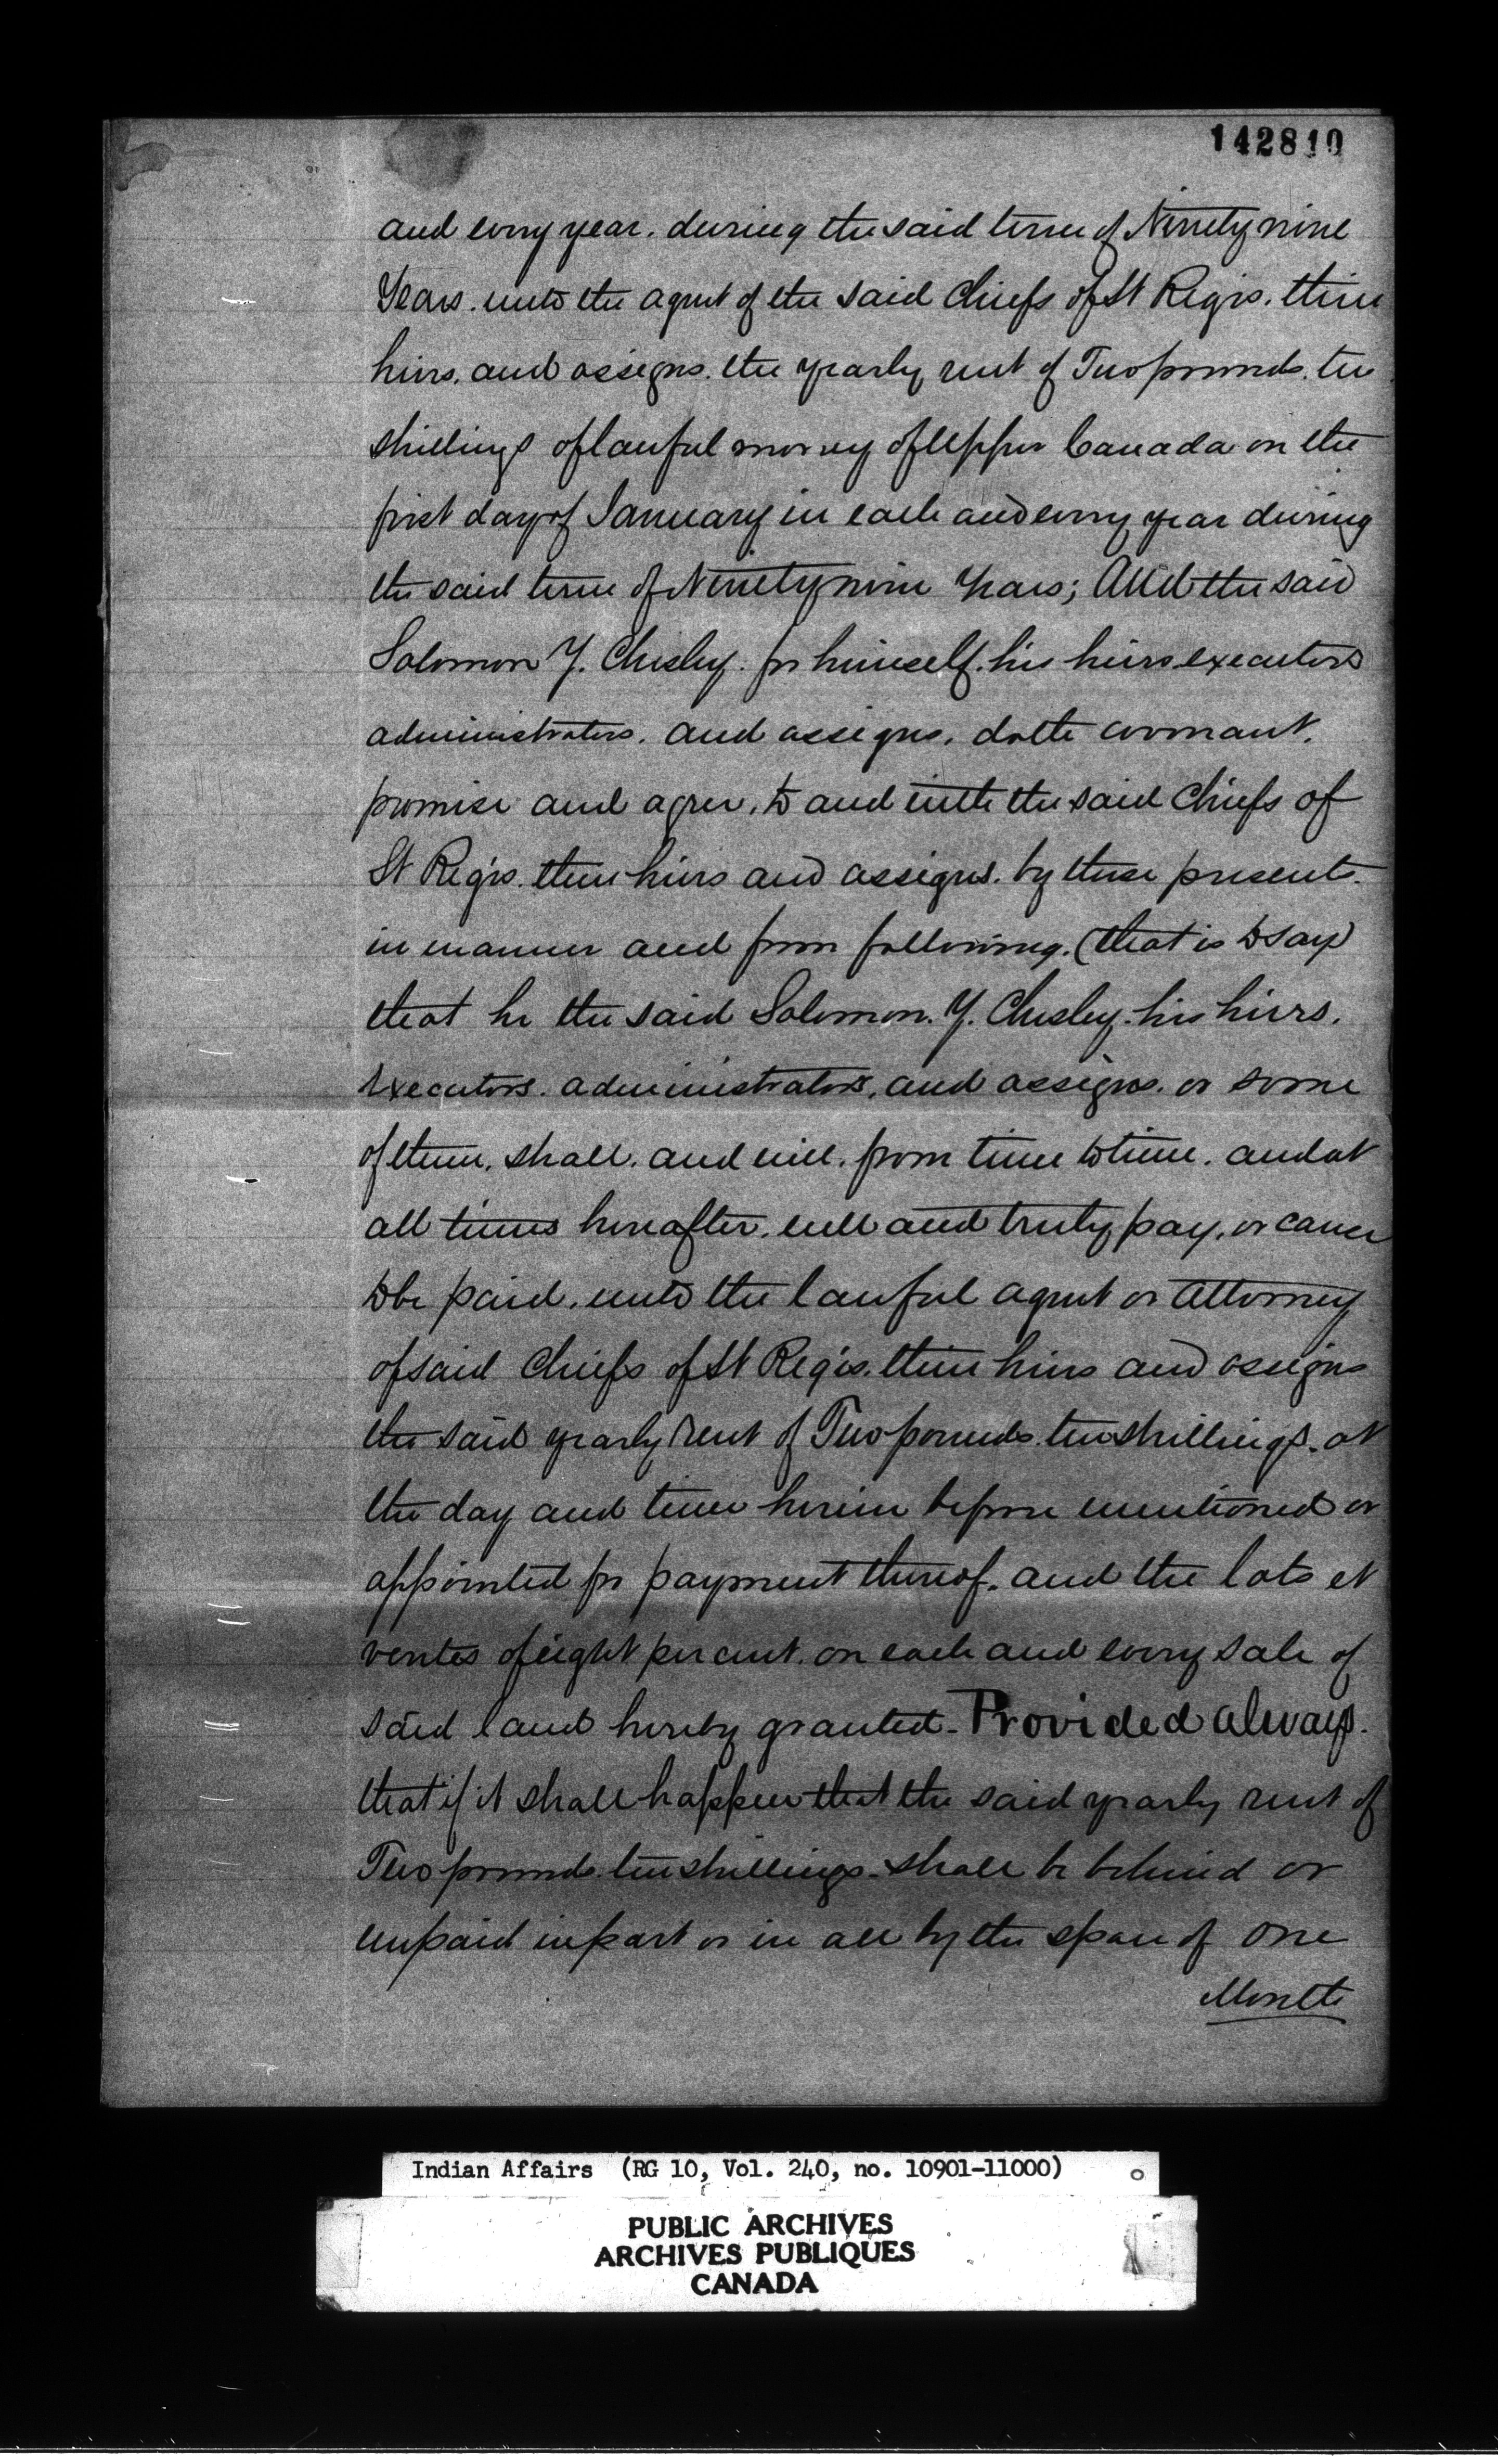 142810
and every year. during the said term of Ninety nine
Years. unto the agent of the said Chiefs of St Regis. their
heirs. and assigns. the yearly rent of Two pounds. ten
shillings of lawful money of Upper Canada on the
first day of January in each and every year during
the said term of Ninety nine Years; And the said
Solomon Y. Chesley. for himself. his heirs executors
administrators. and assigns. doth covenant.
promise and agree. to and with the said Chiefs of
St Regis. their heirs and assigns. by these presents.
in manner and form following. (that is to say)
that he the said Solomon. Y. Chesley. his heirs.
executors. administrators, and assigns. or some
of them. shall. and will. from time to time. and at
all times hereafter. well and truly pay. or cause
to be paid. unto the lawful agent or attorney
of said Chiefs of St Regis. their heirs and assigns
the said yearly Rent of Two pounds ten shillings. at
the day and time herein before mentioned or
appointed for payment thereof. and the lots et
ventes of eight per cent. on each and every sale of
said land hereby granted - Provided always.
that if it shall happen that the said yearly rent of
Two pounds ten shillings - shall be behind or
unpaid in part or in all by the space of one
Month
Indian Affairs (RG 10, Vol. 240, no. 10901-11000)
PUBLIC ARCHIVES
ARCHIVES PUBLIQUES
CANADA